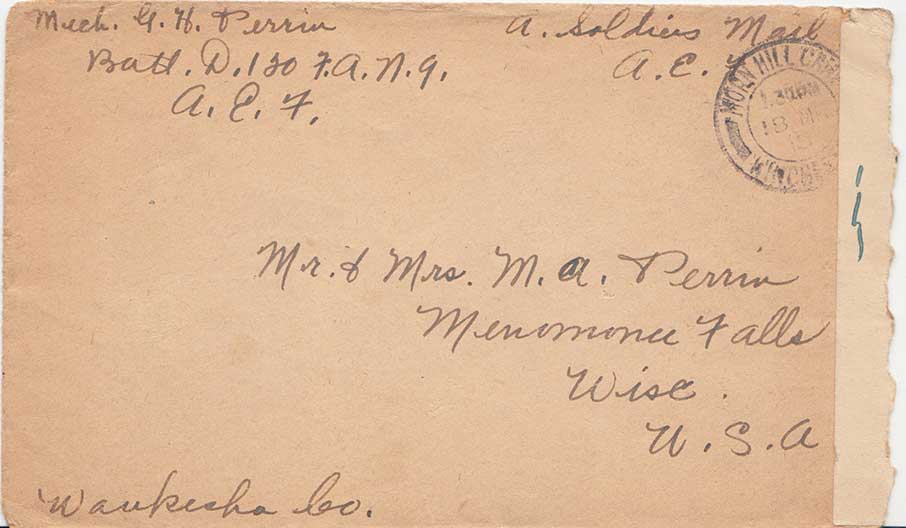 Mech. G. H. Perrin
Batt. D. 120 F.A.N.G.
A. E. F.
A. Soldiers Mail
A. E. F
MORN HILL CAMP
1.30PM
18 MR
18
WINCHE
Mr. & Mrs. M. A. Perrin
Menomonee Falls
Wisc.
U. S. A
Waukesha Co.